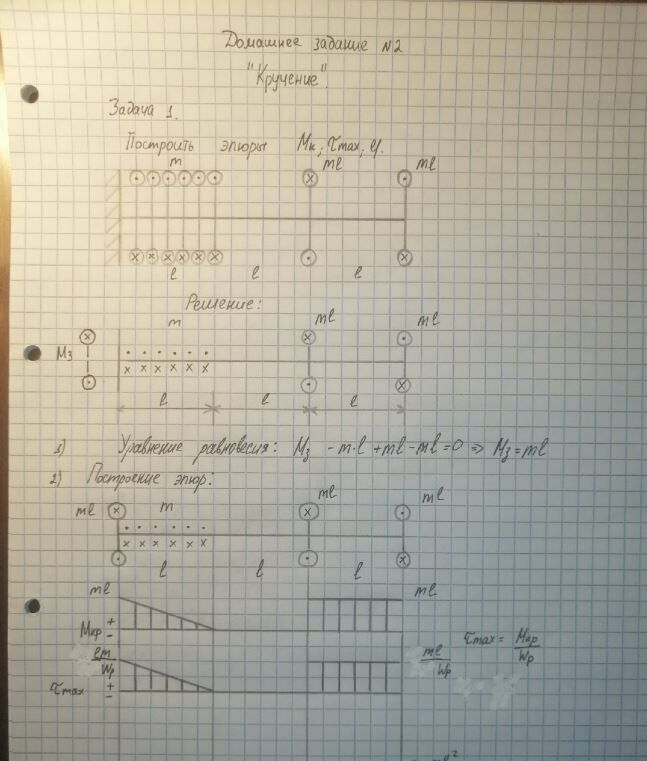 Домашнее задание №2
"Кручение".
Задача 1.
Построить эпюры Мк; τmax; φ.
m ml ml
l l l
Решение:
m ml ml
Mз
l l l
1) Уравнение равновесия: Mз - m·l + ml - ml = 0 ⇒ Mз = ml
2) Построение эпюр:
ml m ml ml
l l l
ml ml
Мкр + -
τmax = Мкр/Wp
lm/Wp ml/Wp
τmax + -